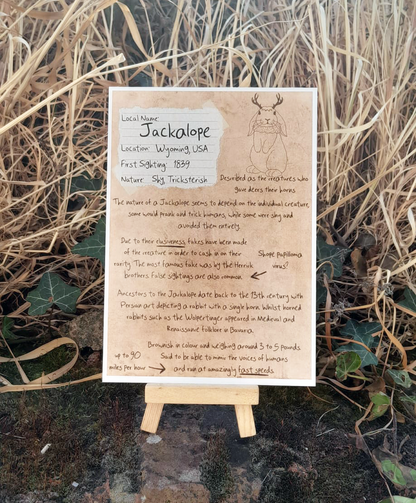 Local Name:
Jackalope
Location: Wyoming, USA
First Sighting: 1839
Nature: Shy, Tricksterish
Described as the creatures who
gave deers their horns
The nature of a Jackalope seems to depend on the individual creature,
some would prank and trick humans, while some were shy and
avoided them entirely.
Due to their elusiveness, fakes have been made
of the creature in order to cash in on their
rarity. The most famous fake was by the Herrick
brothers. False sightings are also common
Shope papilloma
virus?
Ancestors to the Jackalope date back to the 13th century with
Persian art depicting a rabbit with a single horn. Whilst horned
rabbits such as the Wolpertinger appeared in Medieval and
Renaissance folklore in Bavaria.
Brownish in colour and weighing around 3 to 5 pounds.
Said to be able to mimic the voices of humans
and run at amazingly fast speeds.
up to 90
miles per hour